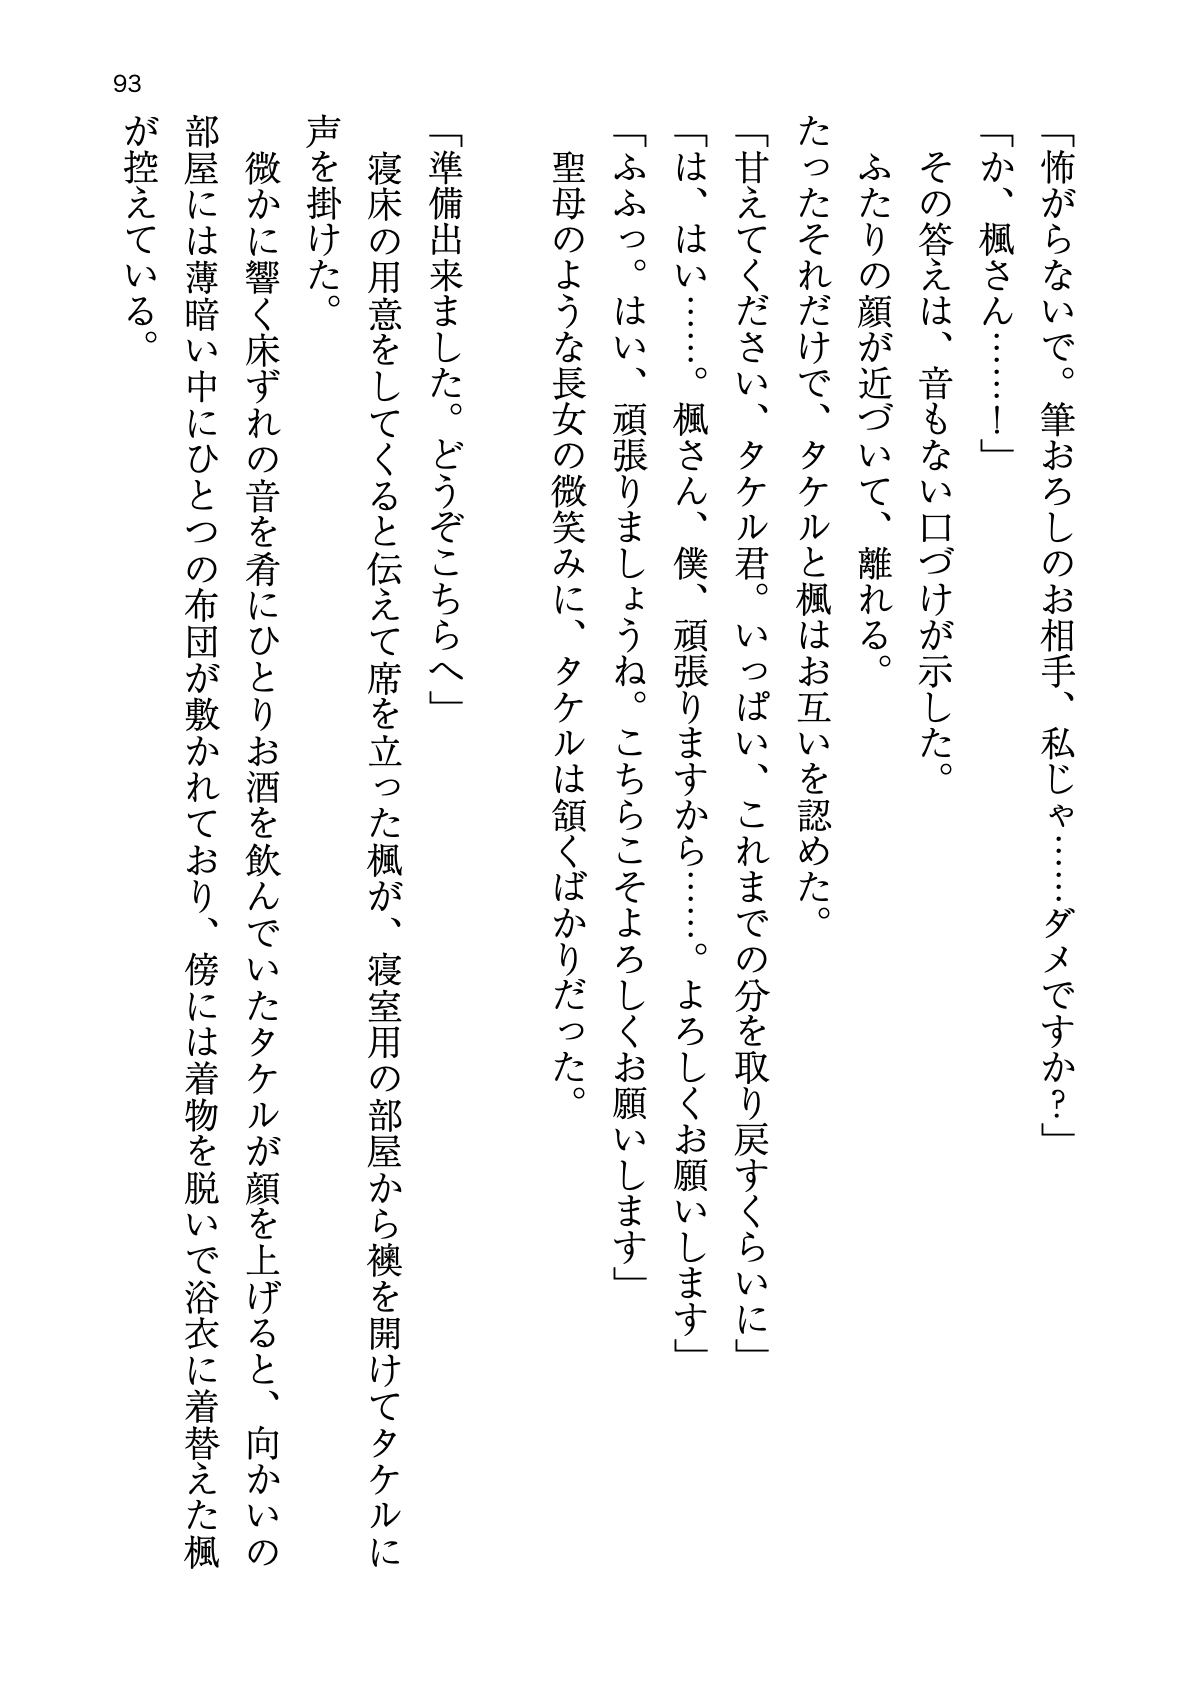 93
「怖がらないで。筆おろしのお相手、私じゃ……ダメですか？」
「か、楓さん……！」
その答えは、音もない口づけが示した。
ふたりの顔が近づいて、離れる。
たったそれだけで、タケルと楓はお互いを認めた。
「甘えてください、タケル君。いっぱい、これまでの分を取り戻すくらいに」
「は、はい……。楓さん、僕、頑張りますから……。よろしくお願いします」
「ふふっ。はい、頑張りましょうね。こちらこそよろしくお願いします」
聖母のような長女の微笑みに、タケルは頷くばかりだった。
「準備出来ました。どうぞこちらへ」
寝床の用意をしてくると伝えて席を立った楓が、寝室用の部屋から襖を開けてタケルに
声を掛けた。
微かに響く床ずれの音を肴にひとりお酒を飲んでいたタケルが顔を上げると、向かいの
部屋には薄暗い中にひとつの布団が敷かれており、傍には着物を脱いで浴衣に着替えた楓
が控えている。